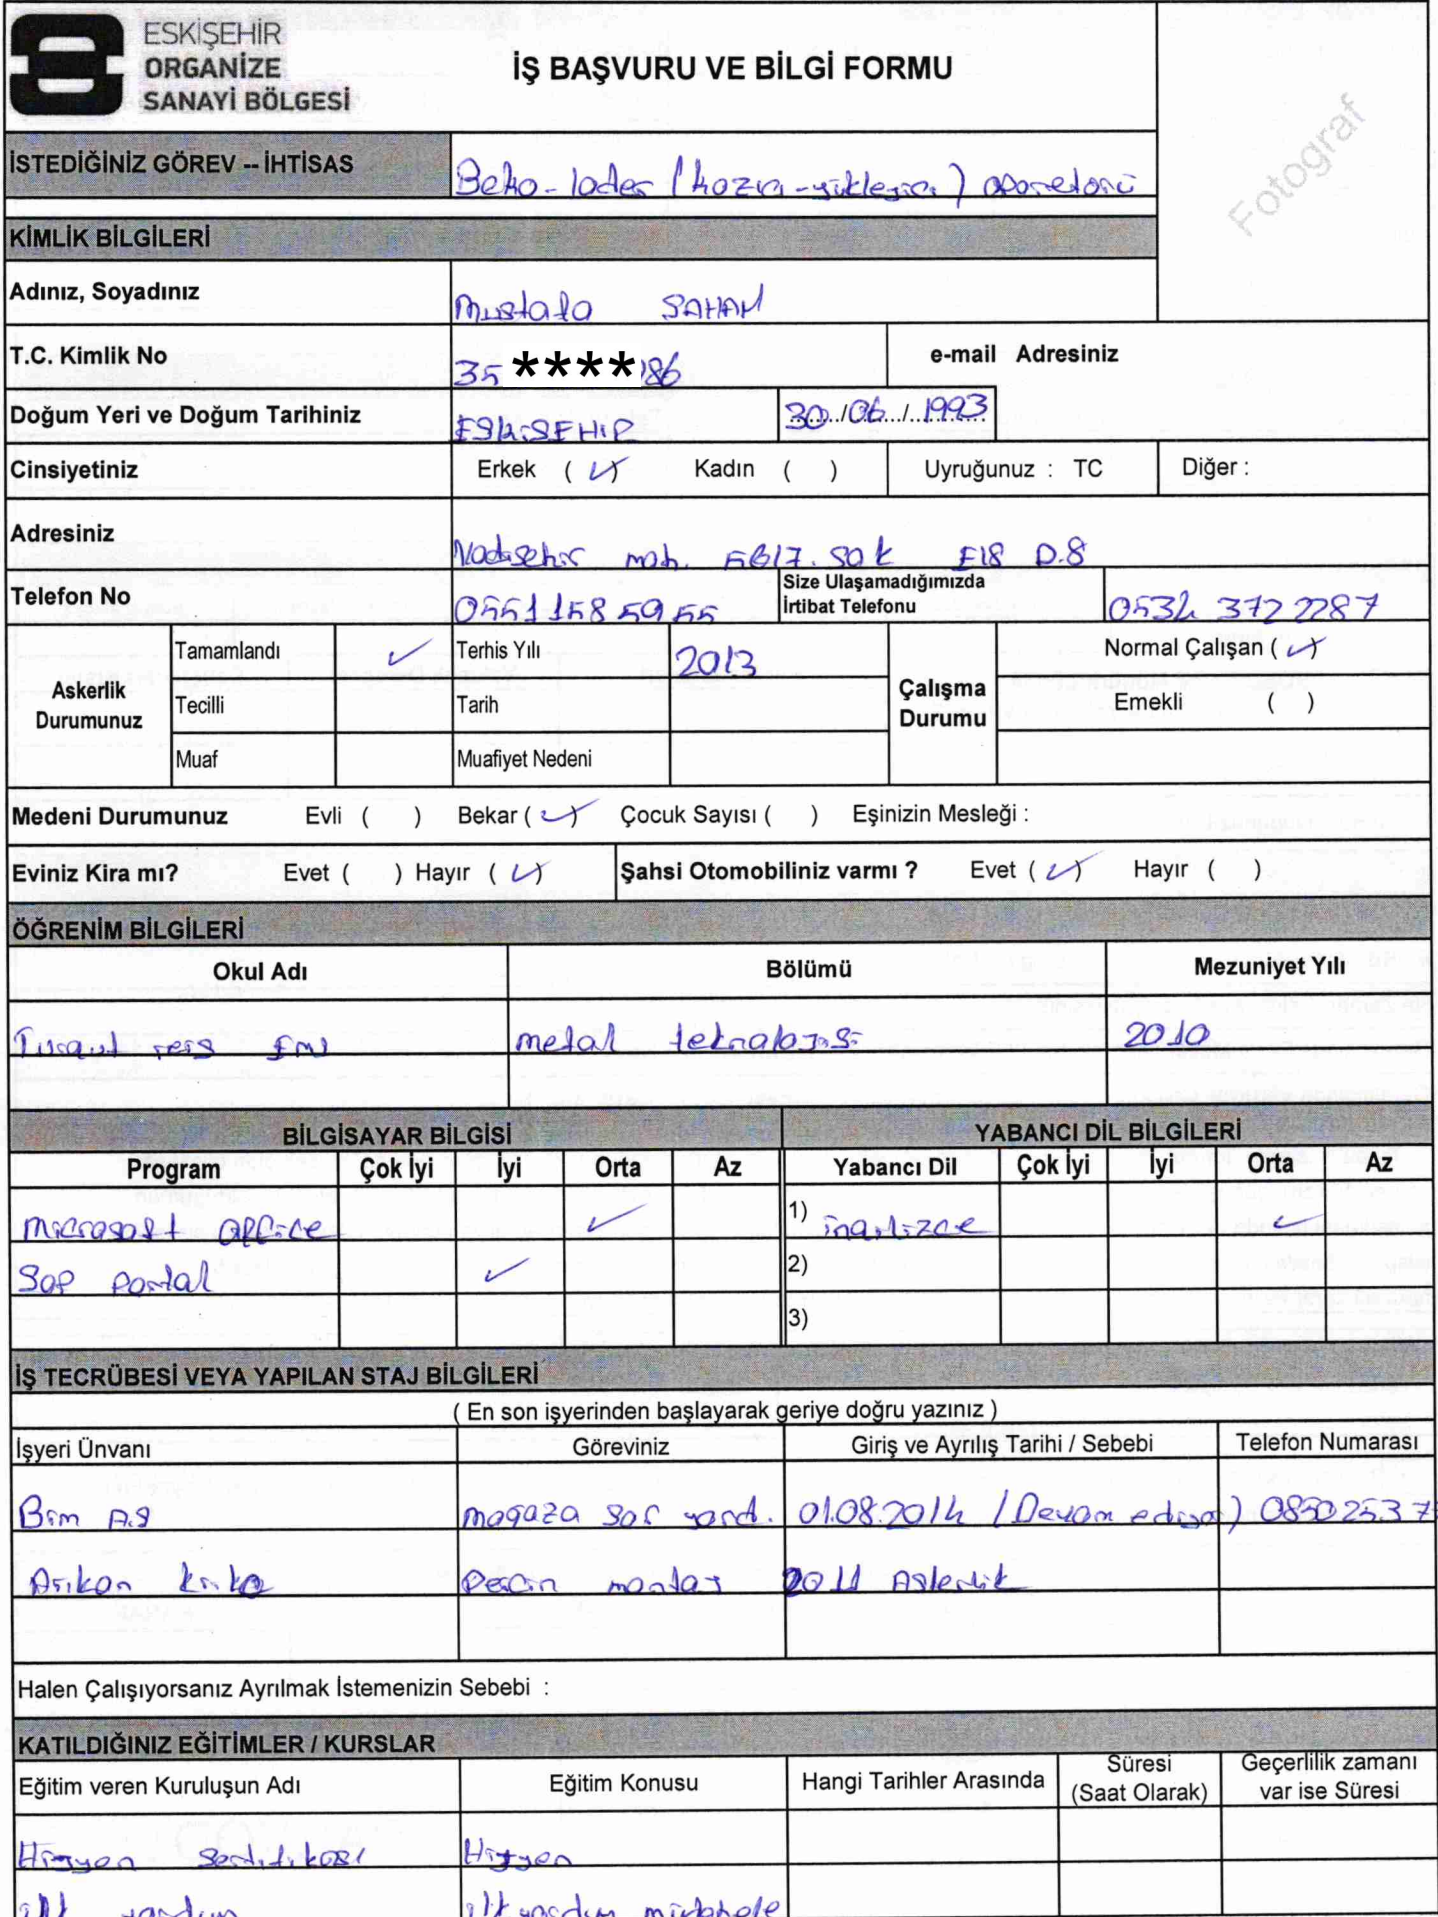 ESKİŞEHİR
ORGANİZE
SANAYİ BÖLGESİ
İŞ BAŞVURU VE BİLGİ FORMU
Fotoğraf
İSTEDİĞİNİZ GÖREV -- İHTİSAS Beko-loder (kazıcı-yükleyici) oparetörü
KİMLİK BİLGİLERİ
Adınız, Soyadınız Mustafa ŞAHAN
T.C. Kimlik No 35 **** 186 e-mail Adresiniz
Doğum Yeri ve Doğum Tarihiniz ESKİŞEHİR 30/06/1993
Cinsiyetiniz Erkek ( ✓ ) Kadın ( ) Uyruğunuz : TC Diğer :
Adresiniz Vadişehir mah. 5617. sok E18 D.8
Telefon No 0551 158 59 55 Size Ulaşamadığımızda İrtibat Telefonu 0534 372 2287
Askerlik Durumunuz Tamamlandı ✓ Terhis Yılı 2013 Çalışma Durumu Normal Çalışan ( ✓ )
Tecilli Tarih Emekli ( )
Muaf Muafiyet Nedeni
Medeni Durumunuz Evli ( ) Bekar ( ✓ ) Çocuk Sayısı ( ) Eşinizin Mesleği :
Eviniz Kira mı? Evet ( ) Hayır ( ✓ ) Şahsi Otomobiliniz varmı ? Evet ( ✓ ) Hayır ( )
ÖĞRENİM BİLGİLERİ
Okul Adı Bölümü Mezuniyet Yılı
Turgut reis EML metal teknolojisi 2010
BİLGİSAYAR BİLGİSİ YABANCI DİL BİLGİLERİ
Program Çok İyi İyi Orta Az Yabancı Dil Çok İyi İyi Orta Az
Microsoft office ✓ 1) ingilizce ✓
Sap portal ✓ 2)
3)
İŞ TECRÜBESİ VEYA YAPILAN STAJ BİLGİLERİ
( En son işyerinden başlayarak geriye doğru yazınız )
İşyeri Ünvanı Göreviniz Giriş ve Ayrılış Tarihi / Sebebi Telefon Numarası
Bim A.Ş mağaza şef yard. 01.08.2014 / (Devam ediyor) 0850 253 7
Arıkan kriko Perçin montaj 2011 Askerlik
Halen Çalışıyorsanız Ayrılmak İstemenizin Sebebi :
KATILDIĞINIZ EĞİTİMLER / KURSLAR
Eğitim veren Kuruluşun Adı Eğitim Konusu Hangi Tarihler Arasında Süresi (Saat Olarak) Geçerlilik zamanı var ise Süresi
Hijyen Sertifikası Hijyen
ilk yardım ilk yardım müdahele